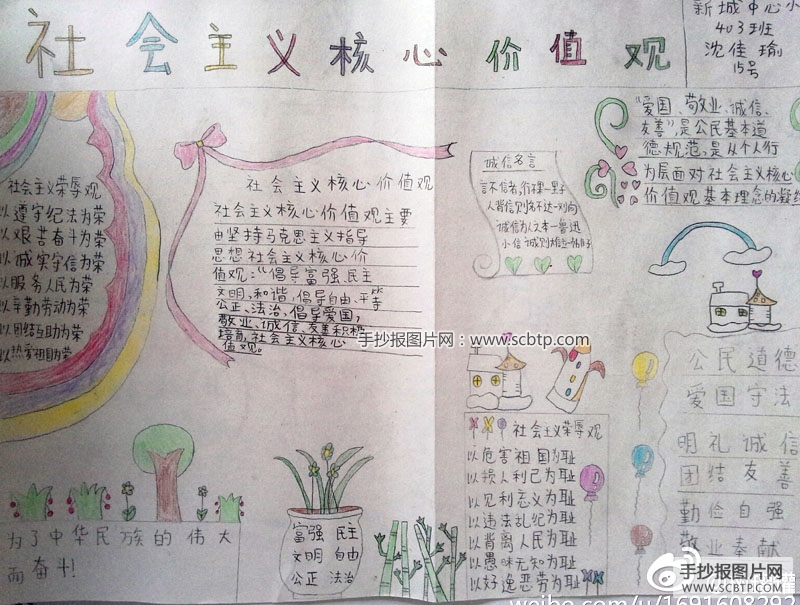 社会主义核心价值观
新城中心小
403班
沈佳瑜
15号
社会主义荣辱观
以遵守纪法为荣
以艰苦奋斗为荣
以诚实守信为荣
以服务人民为荣
以辛勤劳动为荣
以团结互助为荣
以热爱祖国为荣
社会主义核心价值观
社会主义核心价值观主要
由坚持马克思主义指导
思想社会主义核心价
值观:“倡导富强、民主
文明、和谐,倡导自由、平等
公正、法治,倡导爱国,
敬业、诚信、友善积极
培育社会主义核心
值观。
诚信名言
诚信为人之本一鲁迅
“爱国、敬业、诚信、
友善”,是公民基本道
德规范,是从个人行
为层面对社会主义核心
价值观基本理念的凝练
手抄报图片网:www.scbtp.com
社会主义荣辱观
以危害祖国为耻
以损人利己为耻
以见利忘义为耻
以违法乱纪为耻
以背离人民为耻
以愚昧无知为耻
以好逸恶劳为耻
公民道德
爱国守法
明礼诚信
团结友善
勤俭自强
敬业奉献
为了中华民族的伟大
而奋斗!
富强 民主
文明 自由
公正 法治
手抄报图片网
www.SCBTP.com
weibo.com/u/1691608292